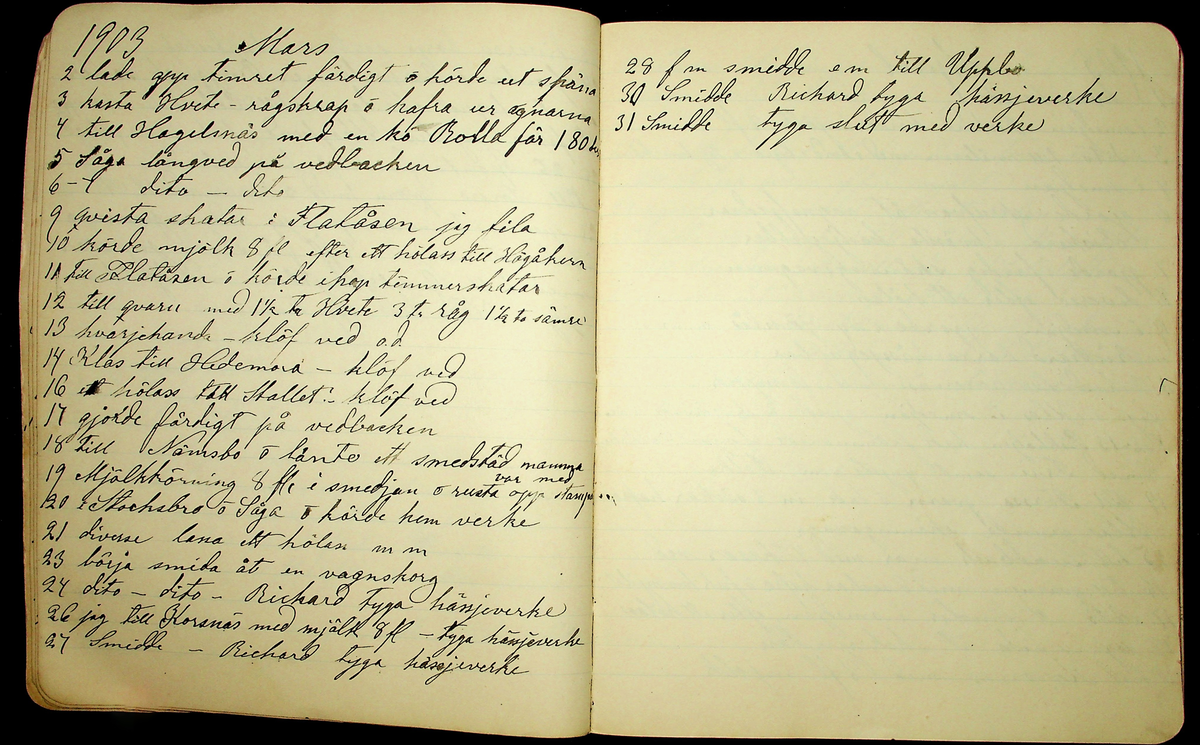 1903 Mars
2 lade opp timret färdigt o körde ut spåna
3 kasta Hvete - rågskrap o hafra ur agnarna
4 till Hagelsnäs med en kö Rolla för 180 kr
5 Såga långved på vedbacken
6-7 dito - dito
9 qvista skatar i Flatåsen jag fila
10 körde mjölk 8 fl efter ett hölass till Högåkern
11 till Flatåsen o körde ihop timmerskatar
12 till qvarn med 1½ t:a Hvete 3 t:r råg 1½ t:a sämre
13 hvarjehanda - klöf ved o.d.
14 Klas till Hedemora - klöf ved
16 ett hölass till Stallet - klöf ved
17 gjorde färdigt på vedbacken
18 till Nämsbo o lånte ett smedstäd mamma
var med
19 Mjölkkörning 8 fl i smedjan o rusta opp
20 i Stocksbro o Såga o körde hem verke
21 diverse lasa ett hölass m m
23 börja smida åt en vagnskorg
24 dito - dito - Richard tyga hässjeverke
26 jag till Korsnäs med mjölk 8 fl - tyga hässjeverke
27 Smidde - Richard tyga hässjeverke
28 f m smidde e m till Uppbo
30 Smidde Richard tyga hässjeverke
31 Smidde tyga slut med verke